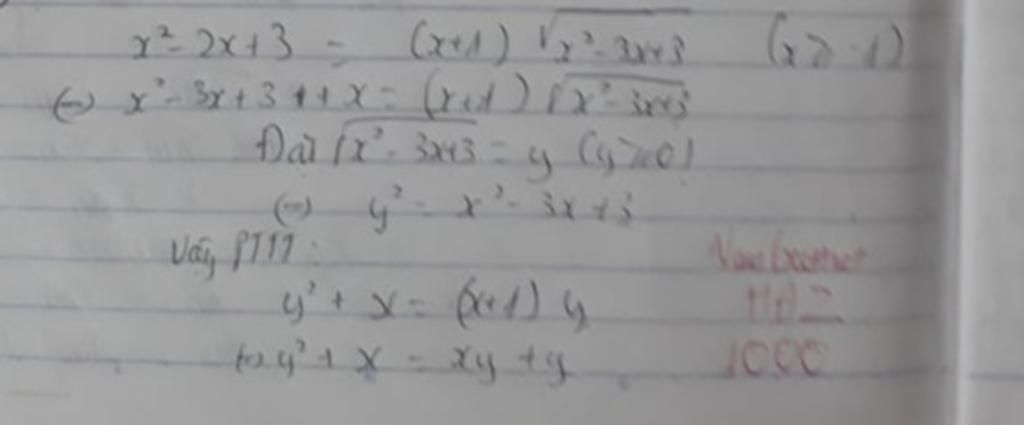 x² - 2x + 3 = (x+1) √x² - 3x+3 (x ≥ -1)
(=) x² - 3x + 3 + x = (x+1) √x² - 3x+3
Đặt √x² - 3x+3 = y (y ≥ 0)
(=) y² = x² - 3x + 3
Vậy PTTT:
y² + x = (x+1) y
(=) y² + x = xy + y
1000